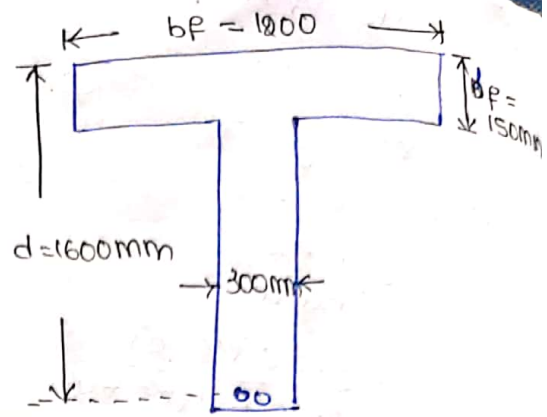 bf = 1800
Df =
150mm
d=1600mm
300m